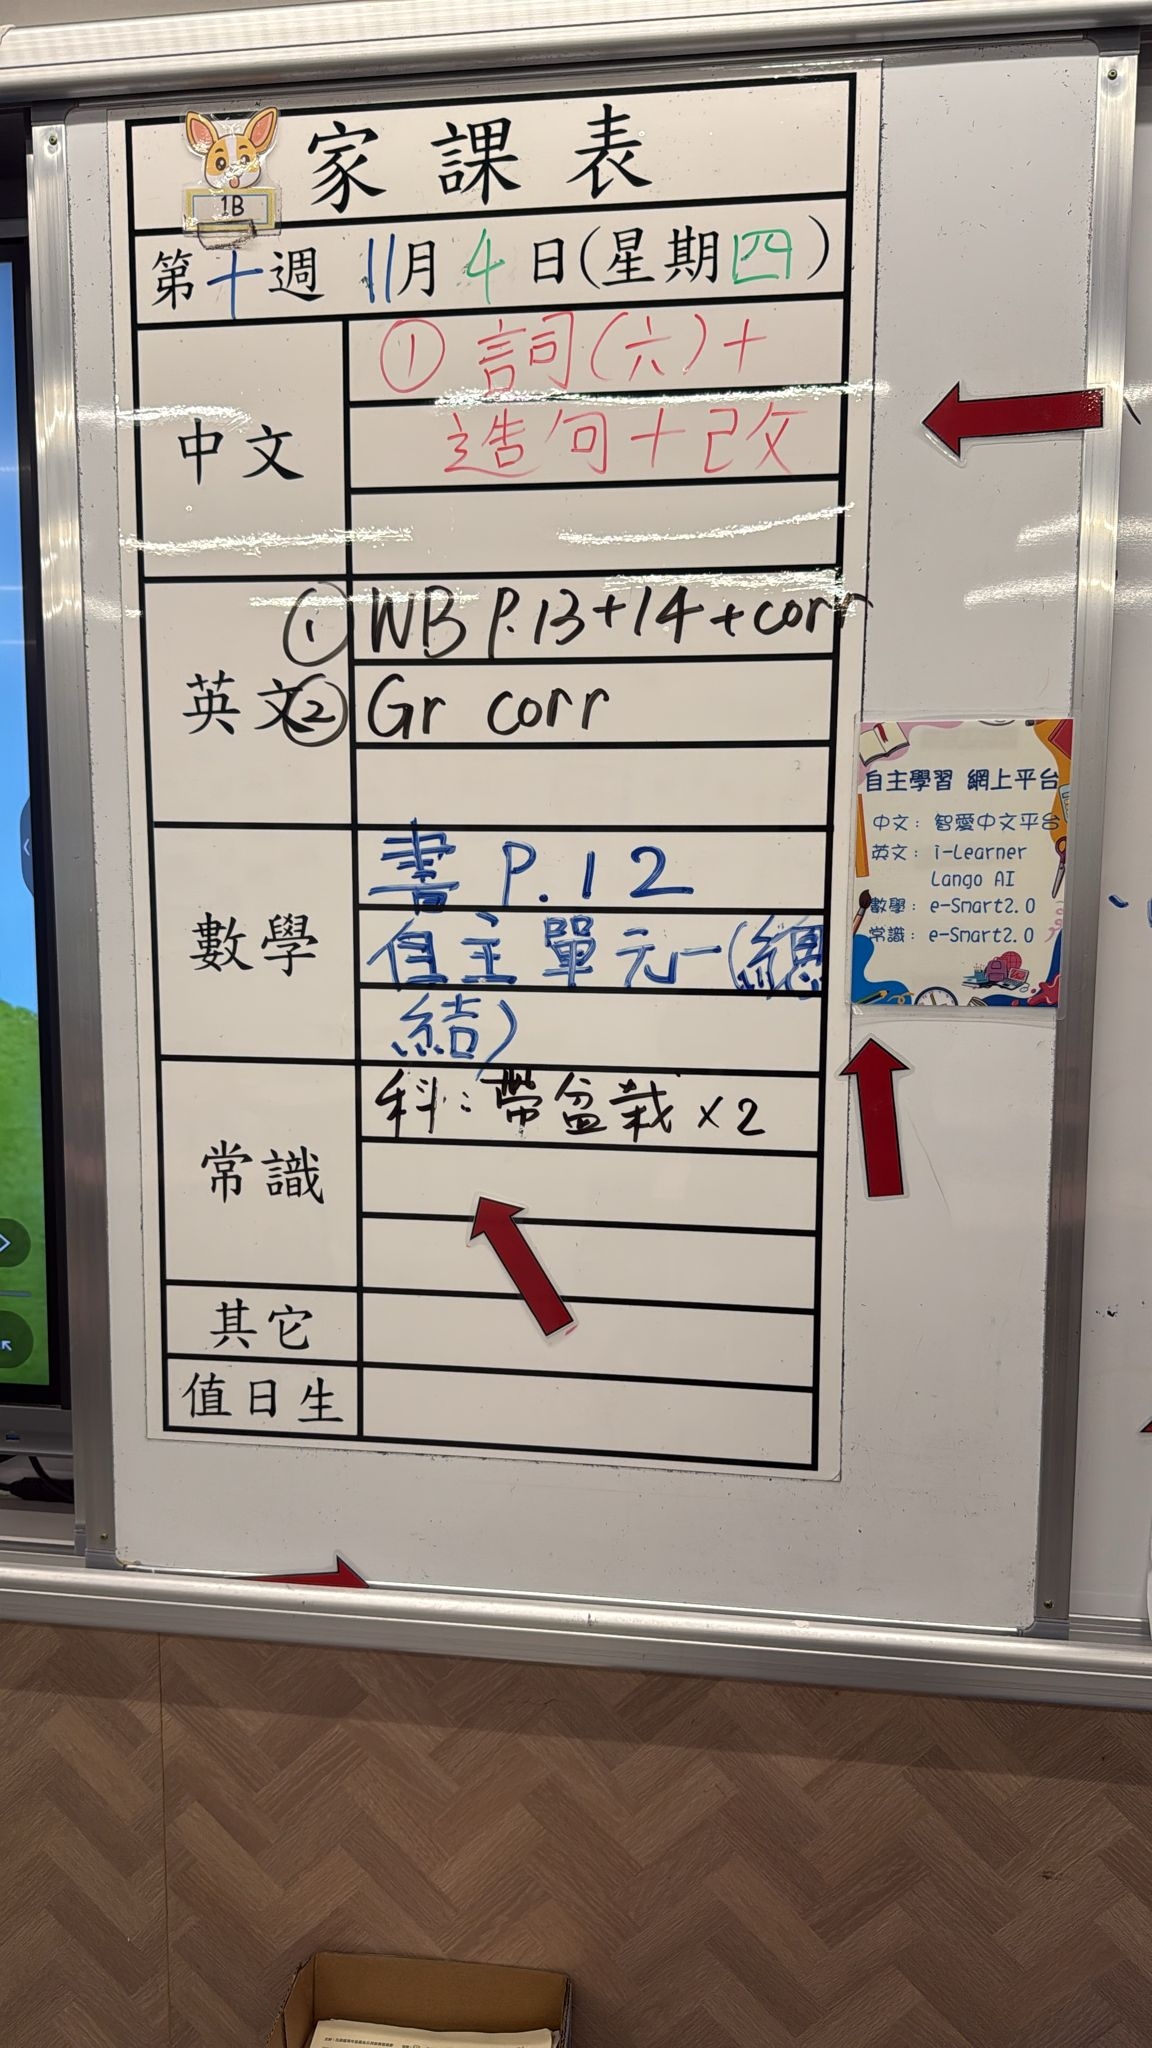 家課表
1B
第十週 11月4日(星期四)
中文
① 詞(六)+
造句+改
英文
① WB P.13+14+corr
② Gr corr
數學
書 P.12
自主單元一(總
結)
常識
科:帶盆栽×2
其它
值日生
自主學習 網上平台
中文: 智愛中文平台
英文: i-Learner
Lango AI
數學: e-Smart2.0
常識: e-Smart2.0